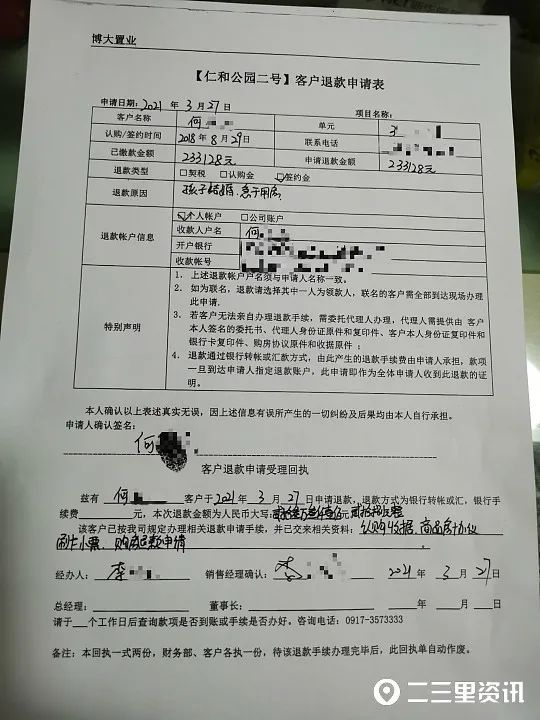 博大置业
【仁和公园二号】客户退款申请表
申请日期：2021 年 3 月 27 日 项目名称：
客户名称 何 单元 3
认购/签约时间 2018年8月29日 联系电话
已缴款金额 233128元 申请退款金额 233128元
退款类型 □契税 □认购金 ☑签约金
退款原因 孩子结婚，急于用房
退款帐户信息 ☑个人帐户 □公司账户
收款人户名 何
开户银行
收款帐号
特别声明
1. 上述退款帐户户名须与申请人名称一致。
2. 如为联名，退款请选择其中一人为领款人，联名的客户需全部到达现场办理
此申请。
3. 若客户无法亲自办理退款手续，需委托代理人办理，代理人需提供由 客户
本人签名的委托书、代理人身份证原件和复印件、客户本人身份证复印件和
银行卡复印件、购房协议原件和收据原件；
4. 退款通过银行转帐或汇款方式，由此产生的退款手续费由申请人承担，款项
一旦到达申请人指定退款账户，此申请即作为全体申请人收到此退款的证
明。
本人确认以上表述真实无误，因上述信息有误所产生的一切纠纷及后果均由本人自行承担。
申请人确认签名：
何
客户退款申请受理回执
兹有 何 客户于 2021 年 3 月 27 日申请退款，退款方式为银行转帐或汇，银行手
续费 元，本次退款金额为人民币大写：
该客户已按我司规定办理相关退款申请手续，并已交来相关资料：认购收据、商品房协议
刷卡小票、购房退款申请
经办人：李 销售经理确认：李 2021 年 3 月 27 日
总经理： 董事长： 年 月 日
请于 个工作日后查询款项是否到账或手续是否办好，咨询电话：0917-3573333
备注：本回执一式两份，财务部、客户各执一份，待该退款手续办理完毕后，此回执单自动作废。
二三里资讯